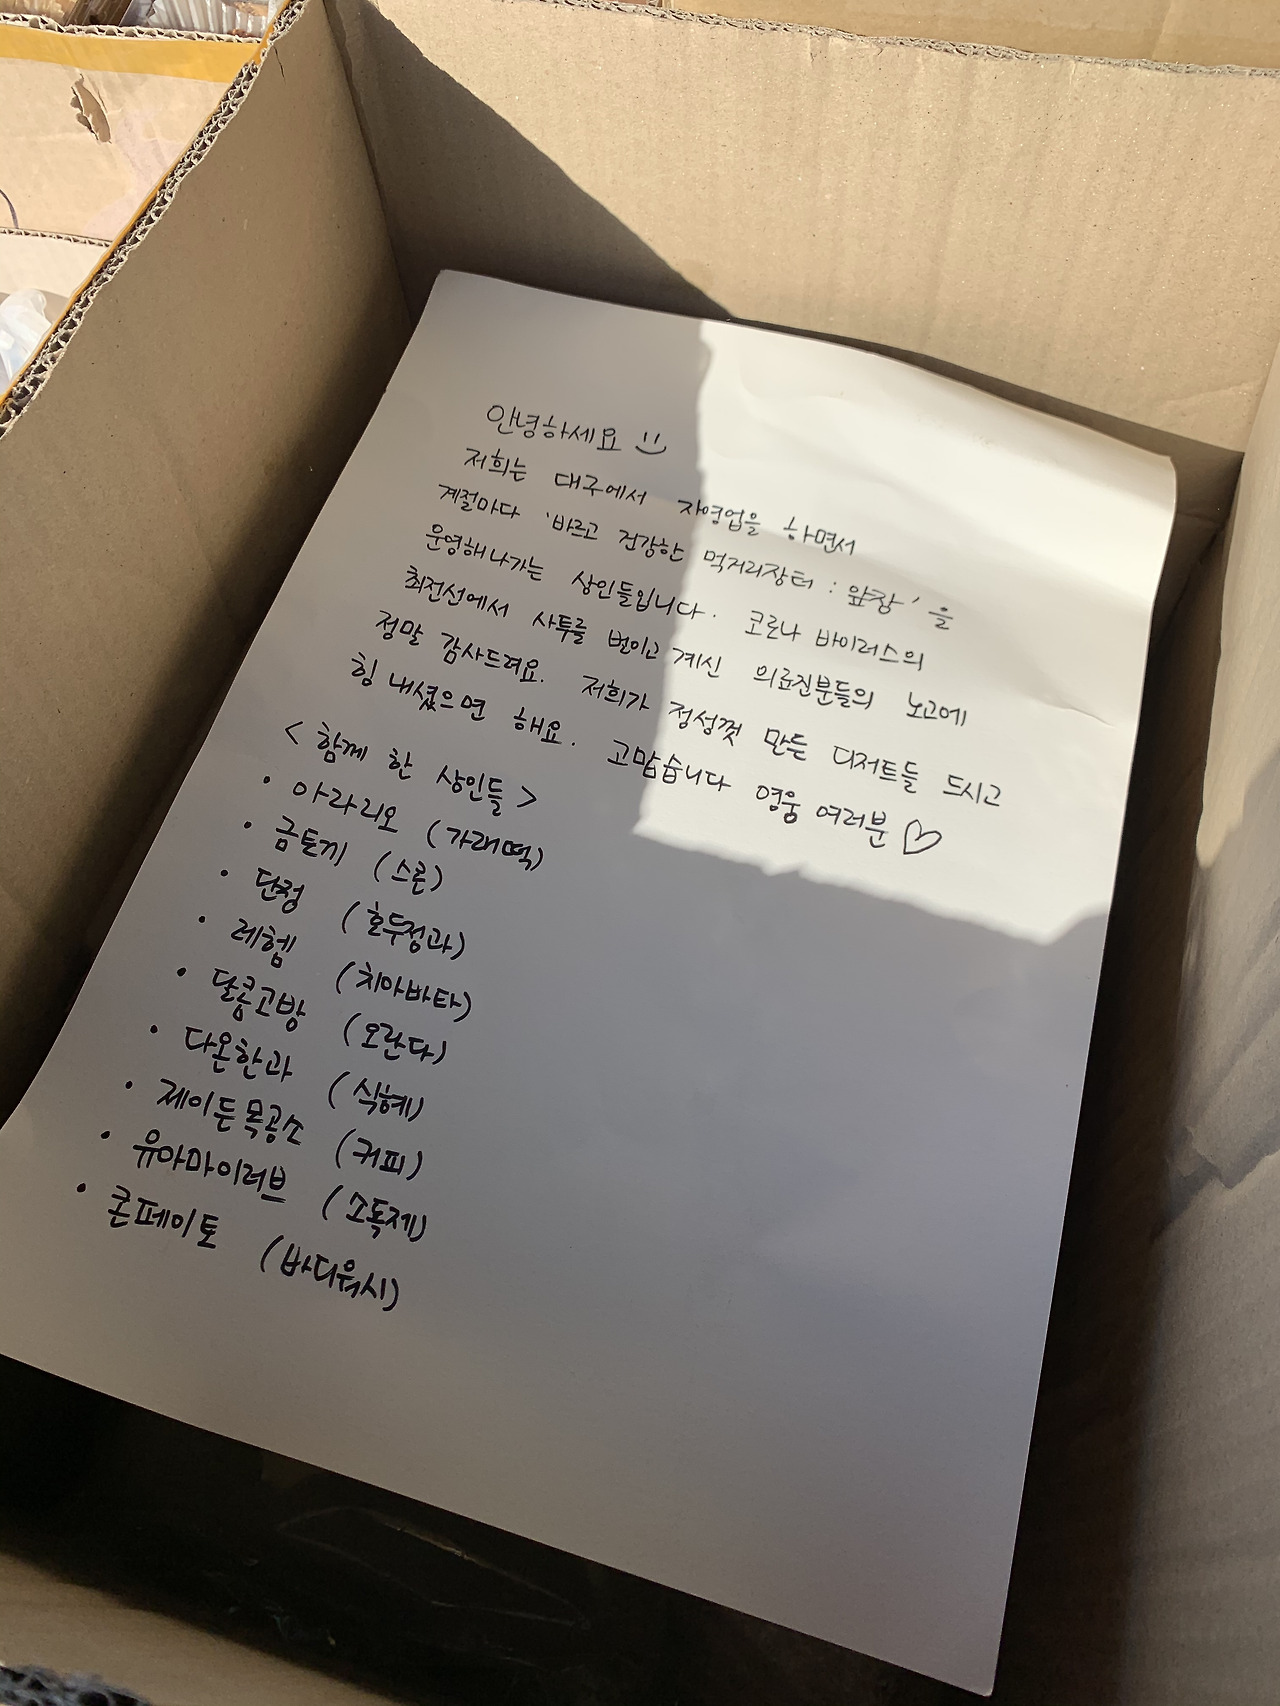 안녕하세요 :)
저희는 대구에서 자영업을 하면서
계절마다 '바르고 건강한 먹거리장터 : 앞장'을
운영해나가는 상인들입니다. 코로나 바이러스의
최전선에서 사투를 벌이고 계신 의료진분들의 노고에
정말 감사드려요. 저희가 정성껏 만든 디저트들 드시고
힘 내셨으면 해요. 고맙습니다 영웅 여러분 ♡
< 함께 한 상인들 >
• 아라리오 (가래떡)
• 금토끼 (스콘)
• 단정 (호두정과)
• 레헴 (치아바타)
• 달콤고방 (오란다)
• 다온한과 (식혜)
• 제이든목공소 (커피)
• 유아마이러브 (소독제)
• 콘페이토 (바디워시)